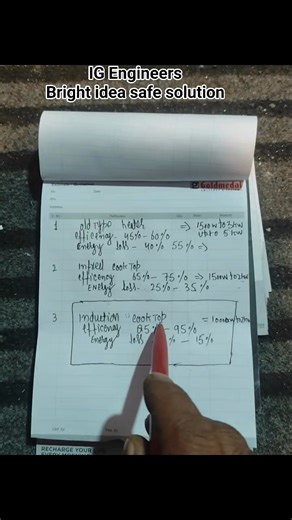 IG Engineers
Bright idea safe solution
Goldmedal
1 old type heater => 1500W to 3kw
efficency - 45% - 60% upto 5 kw
Energy loss - 40% 55% =>
2 infrared cook Top
efficency 65% - 75% => 1500W to 2kw
Energy loss - 25% - 35%
3 induction cook Top
efficency 85% - 95%
Energy loss % - 15%
RECHARGE YOUR